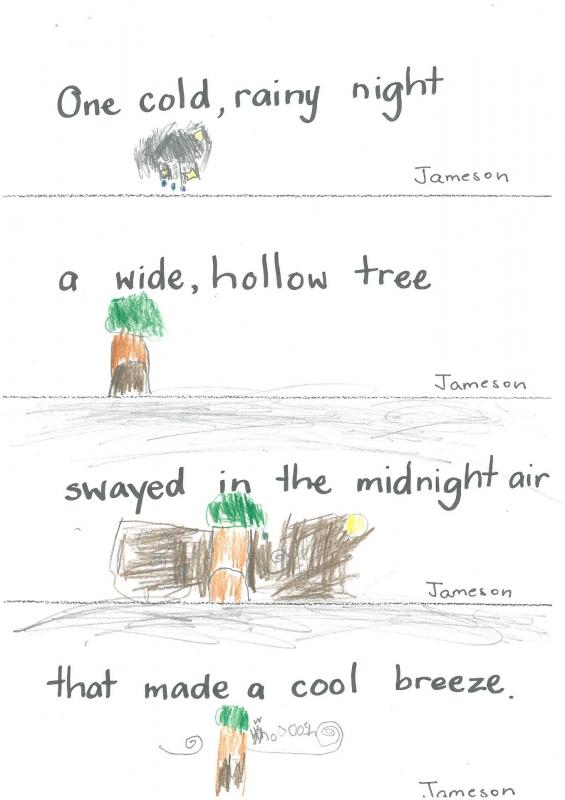 One cold, rainy night
Jameson
a wide, hollow tree
Jameson
swayed in the midnight air
Jameson
that made a cool breeze.
Jameson